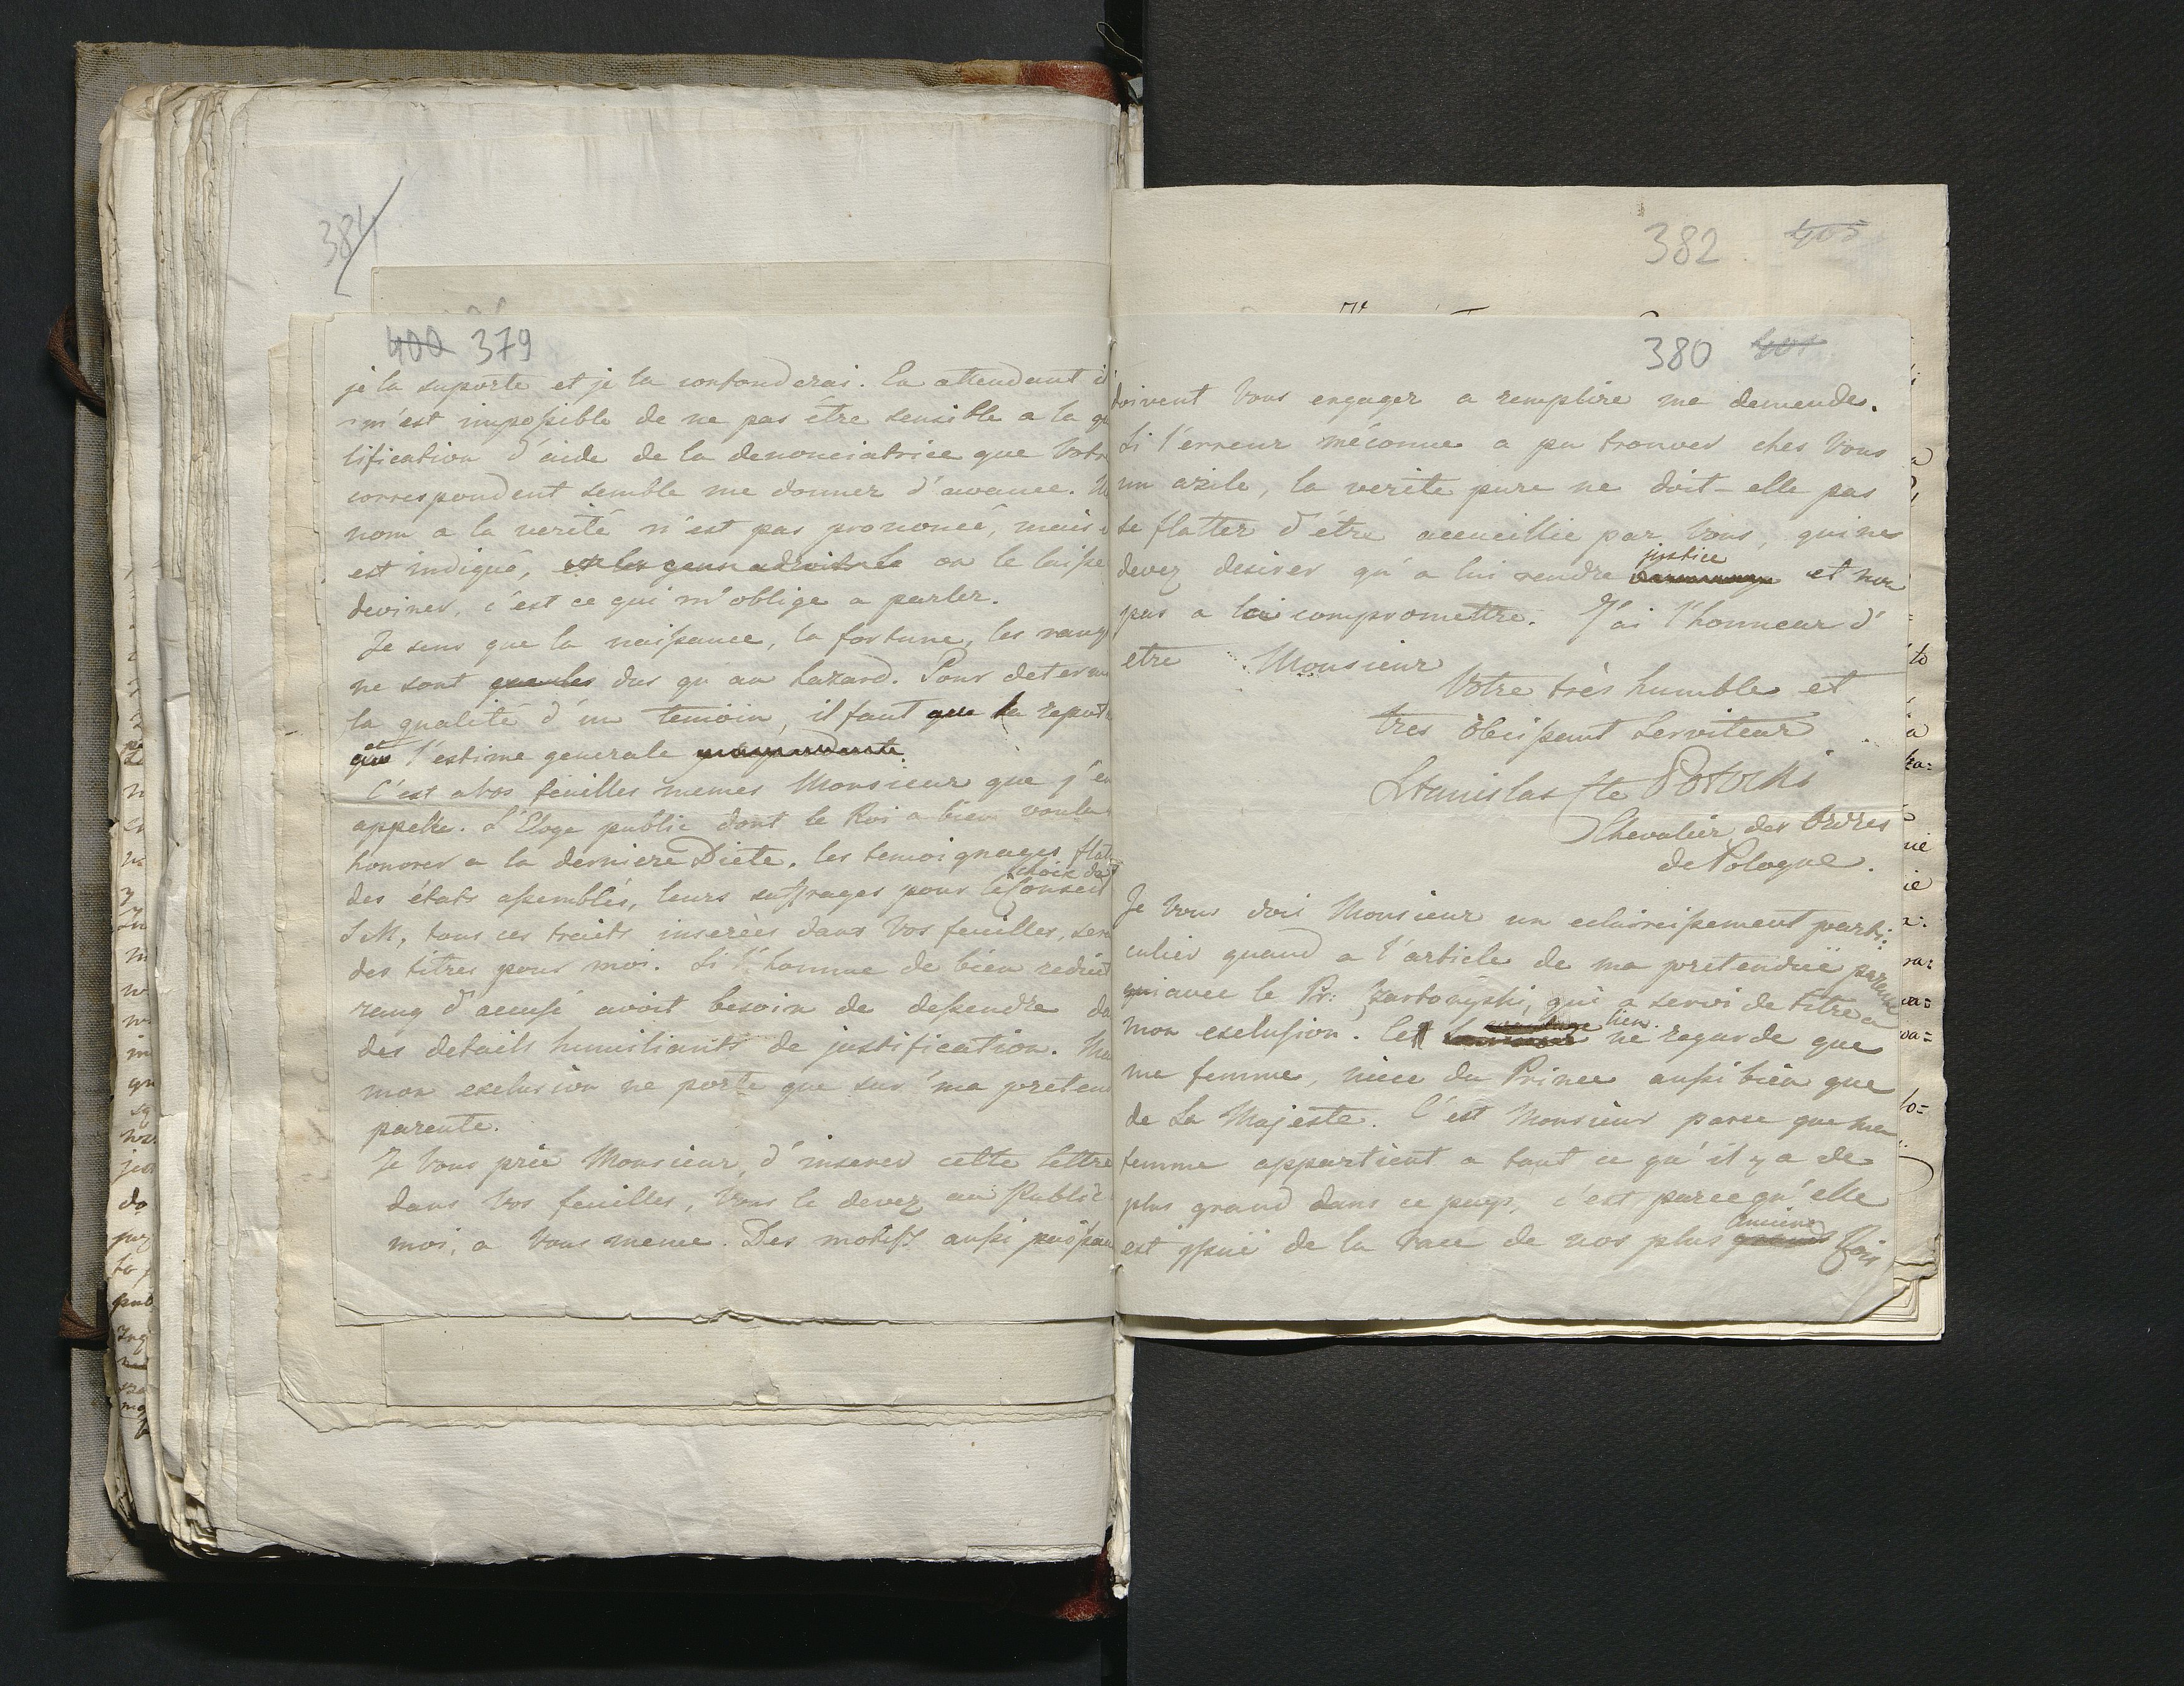 384
400 379
je la suporte et je la confonderai. En attendant il
m'est impossible de ne pas être sensible a la
lification d'aide de la denonciatrice que Votre
correspondent semble me donner d'avance.
nom a la verité n'est pas prononcé, mais
est indiqué, on le laisse
deviner, c'est ce qui m'oblige a parler.
Je sens que la naissance, la fortune, les rangs
ne sont dus qu'au hazard. Pour determ
la qualité d'un temoin, il faut que la reput
et
que l'estime generale
C'est a vos feuilles memes Monsieur que j'en
appelle. L'Eloge public dont le Roi a bien voulu
honorer a la derniere Diete. les temoignages flat
choix du
des états assemblés, leurs suffrages pour le Conseil
S M, tous ces traits inserées dans Vos feuilles, ser
des titres pour moi. Si l'homme de bien reduit
rang d'accusé avoit besoin de dessendre da
des details humiliants de justification.
mon exclusion ne porte que sur ma preten
parente.
Je Vous prie Monsieur, d'inserer cette lettre
dans Vos feuilles, Vous le devez au Public
moi, a Vous meme. Des motifs aussi puissan
382 405
380 401
doivent Vous engager a remplire ma demende.
Si l'erreur méconnue a pu trouver ches Vous
un azile, la verite pure ne doit-elle pas
se flatter d'être accueillie par Vous, qui ne
justice
devez desirer qu'a lui rendre et non
pas a la compromettre. J'ai l'honneur d'
etre Monsieur
Votre très humble et
tres Obeissant Serviteur
Stanislas Cte Potocki
Chevalier des Ordres
de Pologne.
Je Vous dois Monsieur un eclaircissement parti:
culier quand a l'article de ma pretendüe parente
qui avec le Pr: Zartoryski, qui a servi de titre a
lien
mon exclusion. Ce ne regarde que
ma femme, niece du Prince aussi bien que
de Sa Majeste. C'est Monsieur parce que ma
femme appartient a tout ce qu'il y a de
plus grand dans ce pays, c'est parcequ'elle
anciens
est issue de la race de nos plus grands Rois